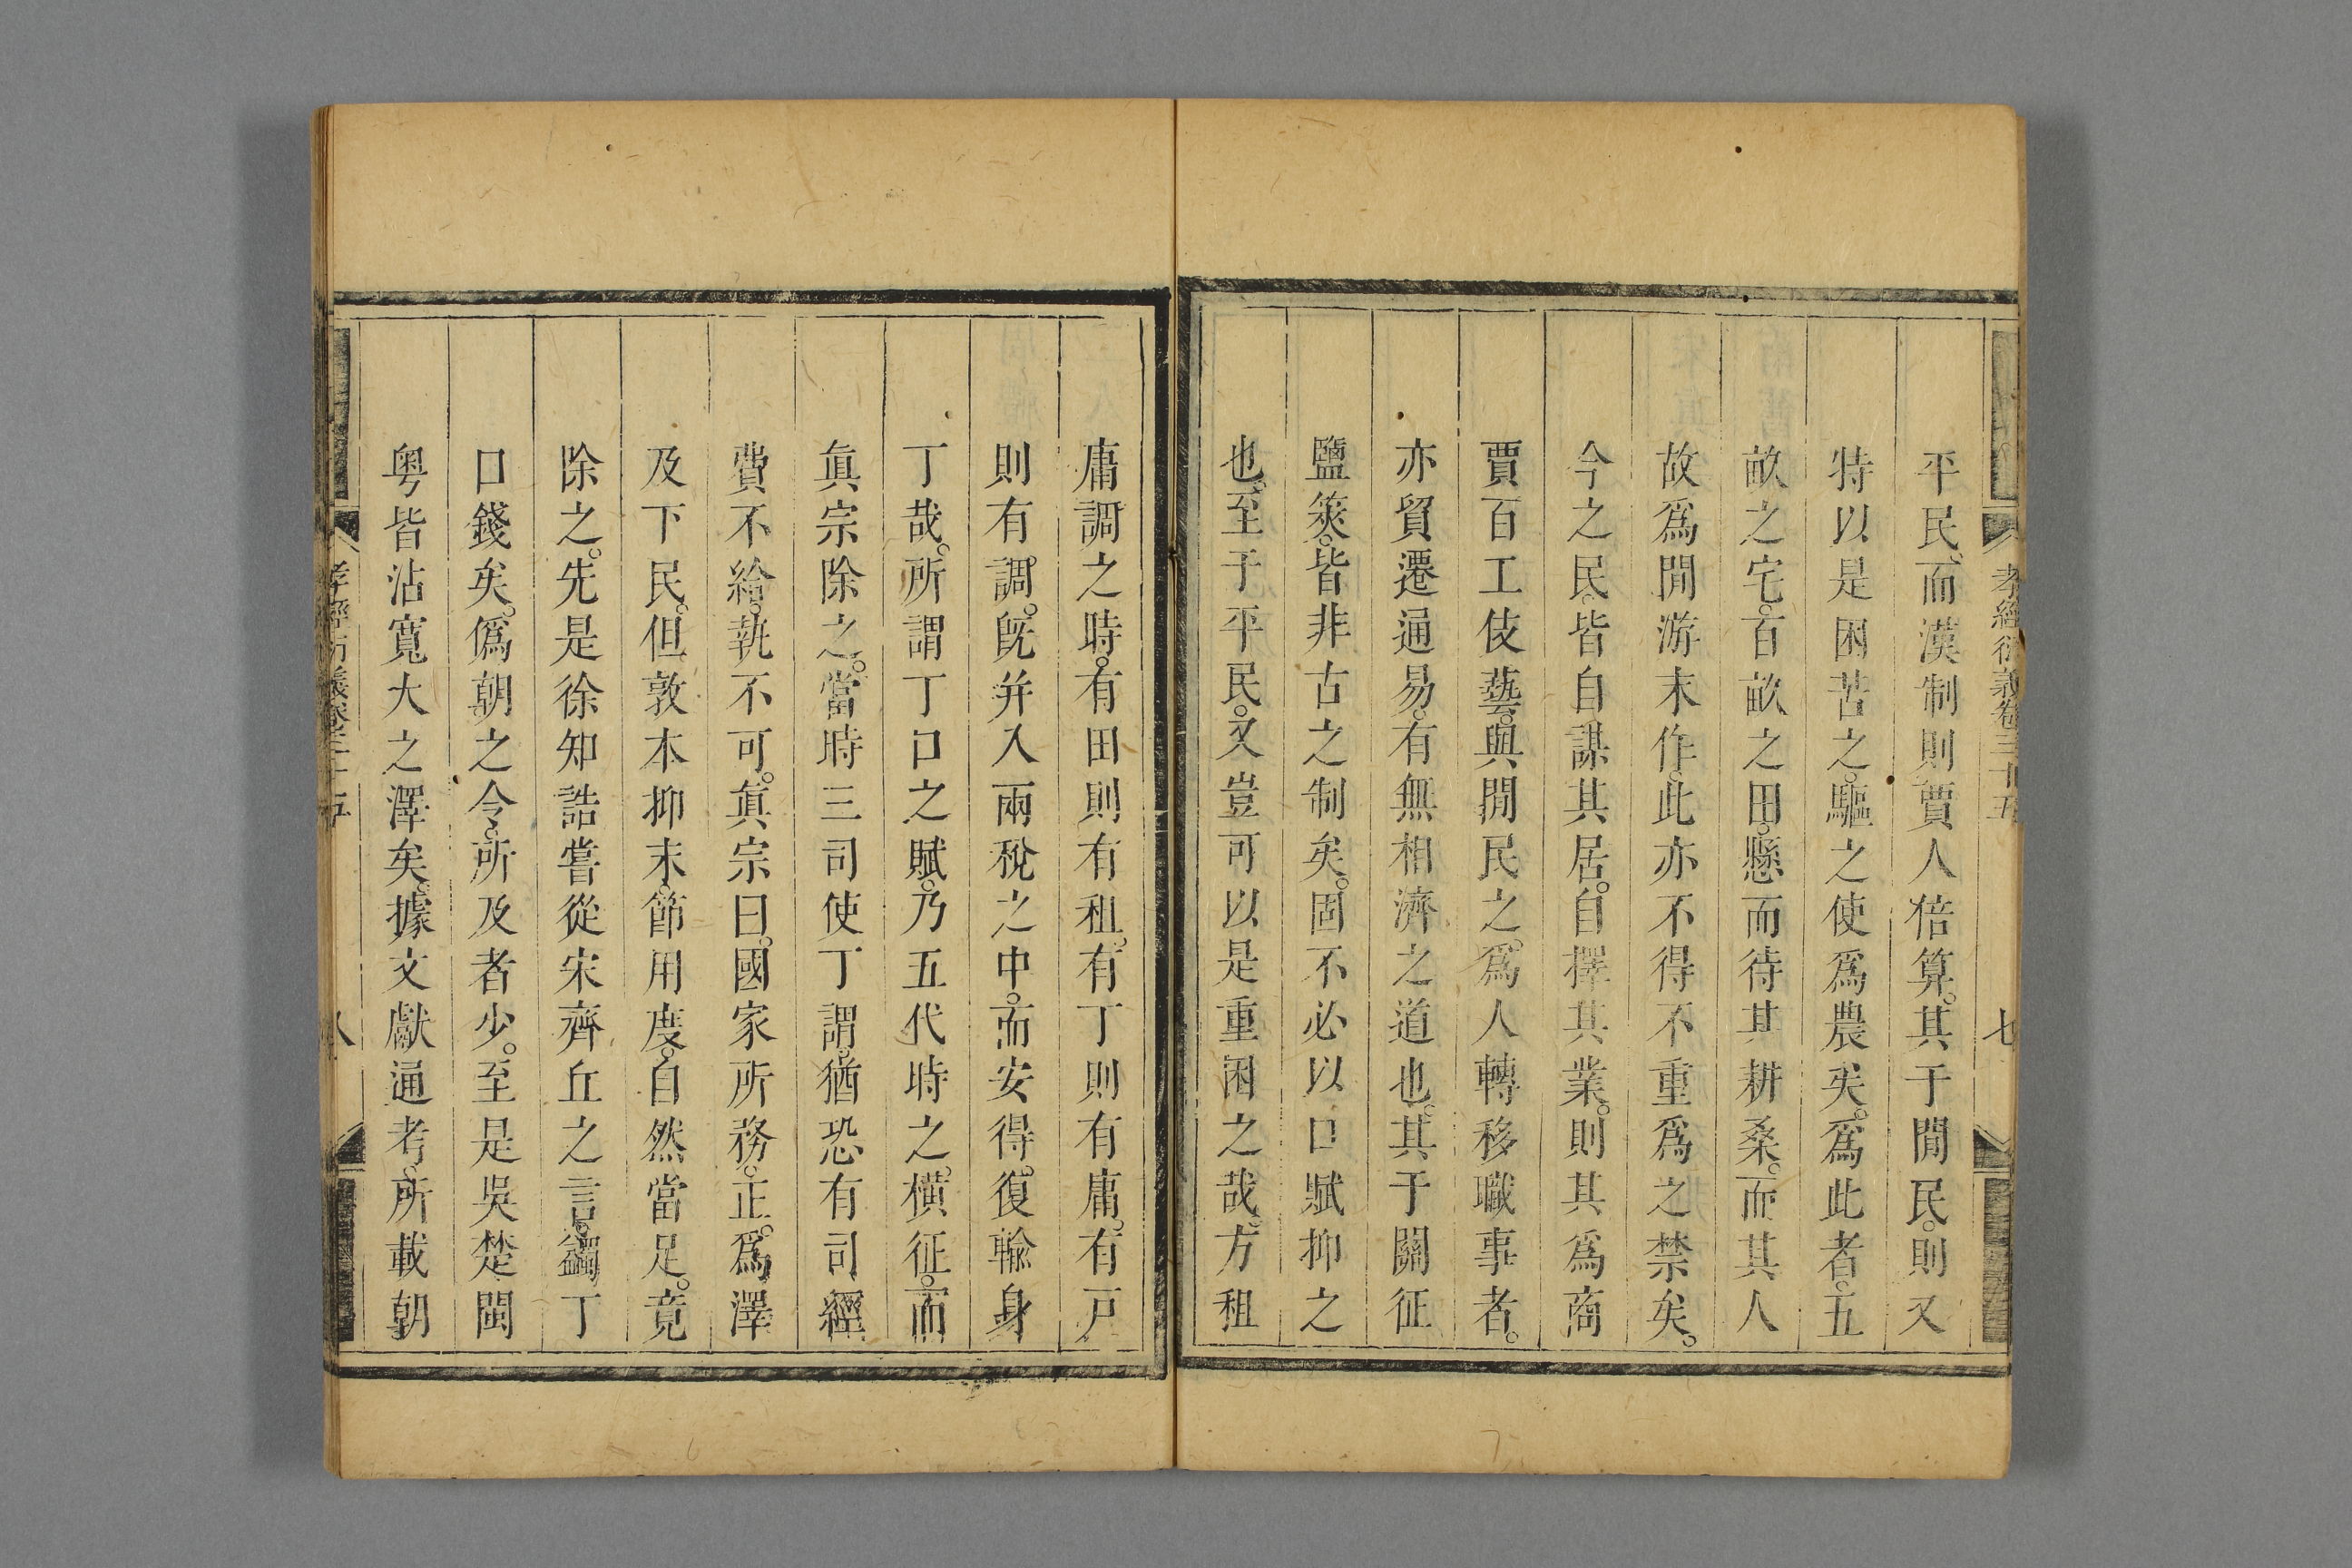 孝經衍義卷三十五
七
平民。而漢制則賈人倍算。其于閒民。則又
特以是困苦之。驅之使爲農矣。爲此者。五
畝之宅。百畝之田。懸而待其耕桑。而其人
故爲閒游末作。此亦不得不重爲之禁矣。
今之民。皆自謀其居。自擇其業。則其爲商
賈百工伎藝。與閒民之。爲人轉移職事者。
亦貿遷通易。有無相濟之道也。其于關征
鹽筴。皆非古之制矣。固不必以口賦抑之
也。至于平民。又豈可以是重困之哉。方租
庸調之時。有田則有租。有丁則有庸。有戸
則有調。旣并入兩稅之中。而安得。復輸身
丁哉。所謂丁口之賦。乃五代時之。橫征。而
眞宗除之。當時三司使丁謂。猶恐有司經
費不給。執不可。眞宗曰。國家所務。正。爲澤
及下民。但敦本抑末。節用度。自然當足。竟
除之。先是徐知誥嘗從宋齊丘之言。蠲丁
口錢矣。僞朝之令。所及者少。至是吳楚閩
粤皆沾寬大之澤矣。據文獻通考。所載朝
孝經衍義卷三十五
八